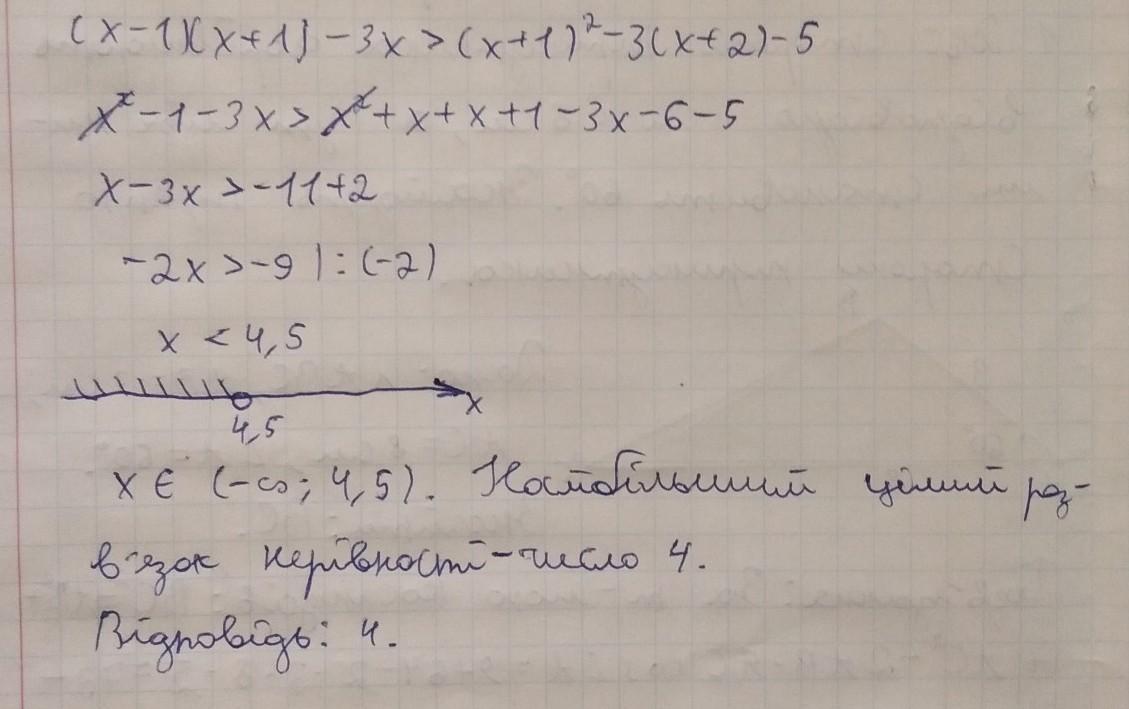 (x-1)(x+1)-3x>(x+1)²-3(x+2)-5
x²-1-3x>x²+x+x+1-3x-6-5
x-3x>-11+2
-2x>-9 |:(-2)
x<4,5
x
4,5
x∈(-∞; 4,5). Найбільший цілий роз-
в'язок нерівності-число 4.
Відповідь: 4.